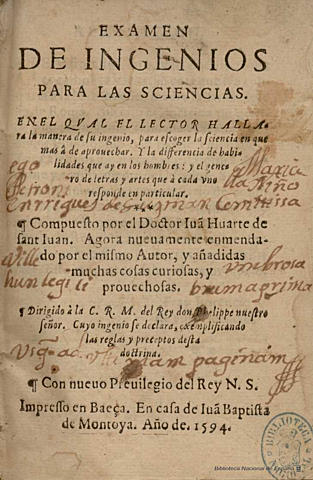 EXAMEN
DE INGENIOS
PARA LAS SCIENCIAS.
EN EL QVAL EL LECTOR HALLA-
ra la manera de su ingenio, para escoger la sciencia en que
mas à de aprouechar. Y la differencia de habi-
lidades que ay en los hombres: y el gene-
ro de letras y artes que à cada vno
responde en particular.
ego Maria
Petroni lla Niño
Enrriquez de Guzman Comitissa
¶ Compuesto por el Doctor Iuã Huarte de
sant Iuan. Agora nueuamente enmenda-
do por el mismo Autor, y añadidas
muchas cosas curiosas, y
prouechosas.
Ville vmbrosa
hunc legi li brum a prima
¶ Dirigido à la C. R. M. del Rey don Phelippe nuestro
señor. Cuyo ingenio se declara, exemplificando
las reglas y preceptos desta
doctrina.
ad paginam
¶ Con nueuo Preuilegio del Rey N. S.
Impresso en Baeça. En casa de Iuã Baptista
de Montoya. Año de. 1594.
BIBLIOTECA
Biblioteca Nacional de España